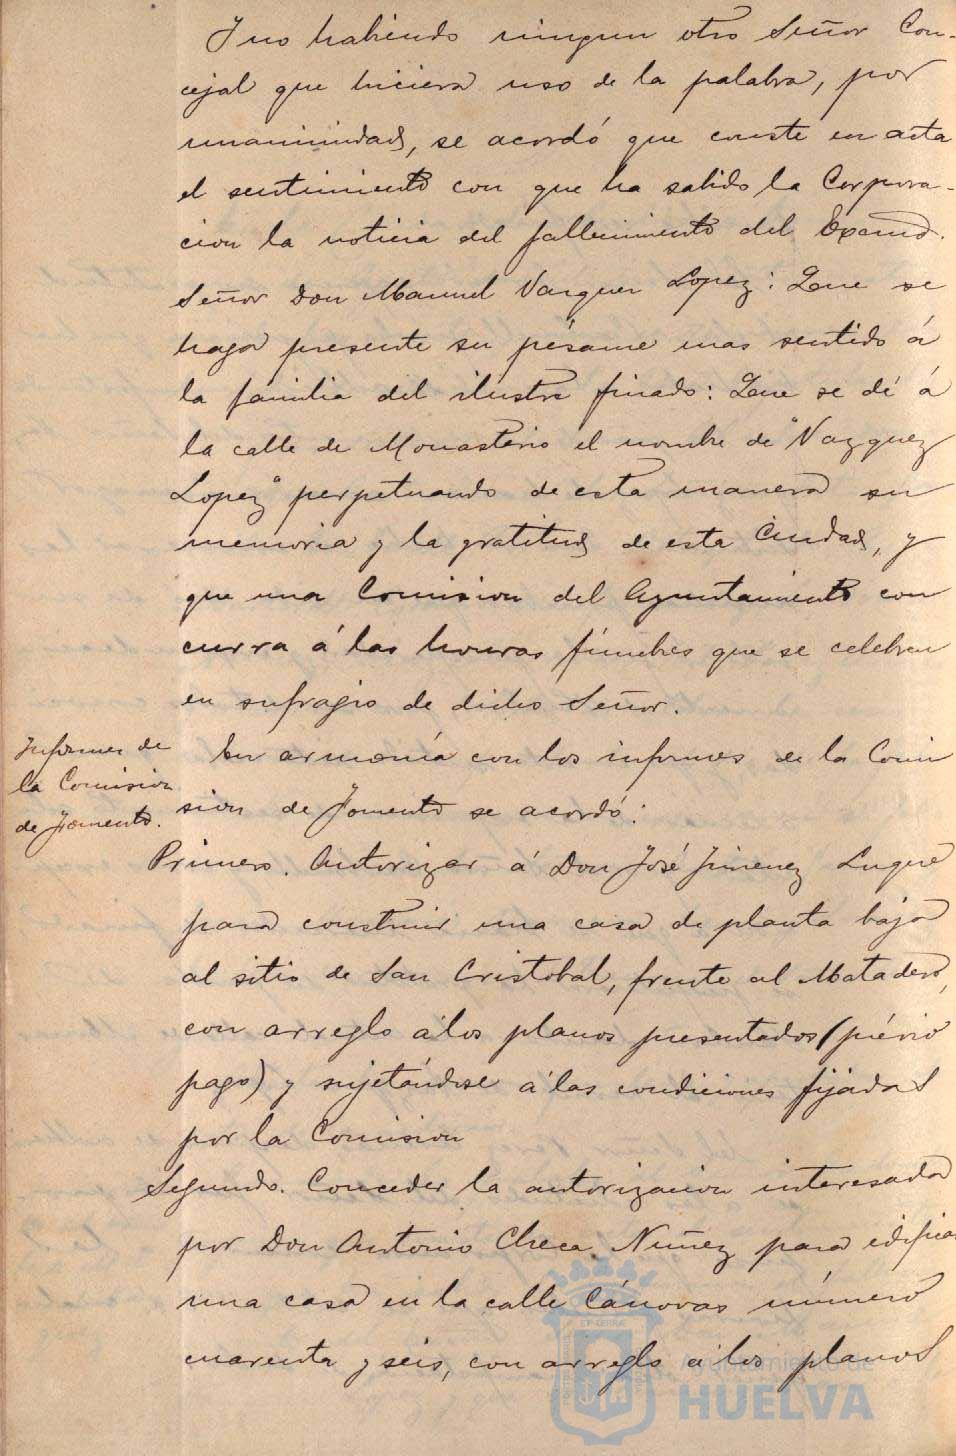 Y no habiendo ningun otro Señor Con-
cejal que hiciera uso de la palabra, por
unanimidad, se acordó que conste en acta
el sentimiento con que ha sabido la Corpora-
cion la noticia del fallecimiento del Excmo.
Señor Don Manuel Vazquez Lopez: Que se
haga presente su pésame mas sentido á
la familia del ilustre finado: Que se dé á
la calle de Monasterio el nombre de "Vazquez
Lopez" perpetuando de esta manera su
memoria y la gratitud de esta Ciudad, y
que una Comision del Ayuntamiento con
curra á las honras fúnebres que se celebren
en sufragio de dicho Señor.
Informes de
la Comision
de Fomento.
En armonía con los informes de la Comi
sion de Fomento se acordó:
Primero. Autorizar á Don José Jimenez Luque
para construir una casa de planta baja
al sitio de San Cristobal, frente al Matadero,
con arreglo á los planos presentados (prévio
pago) y sujetándose á las condiciones fijadas
por la Comision
Segundo. Conceder la autorizacion interesada
por Don Antonio Checa Nuñez para edificar
una casa en la calle Cánovas número
cuarenta y seis, con arreglo á los planos
Ayuntamiento de
HUELVA